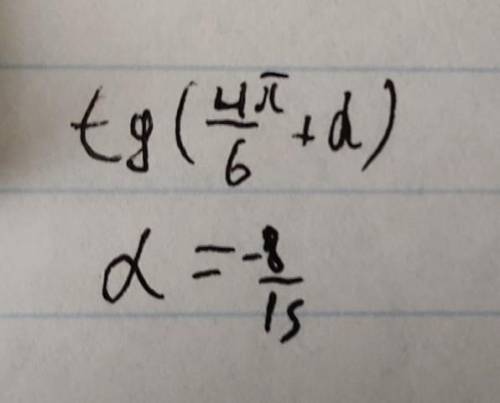 tg(4π/6 + α)
α = -8/15